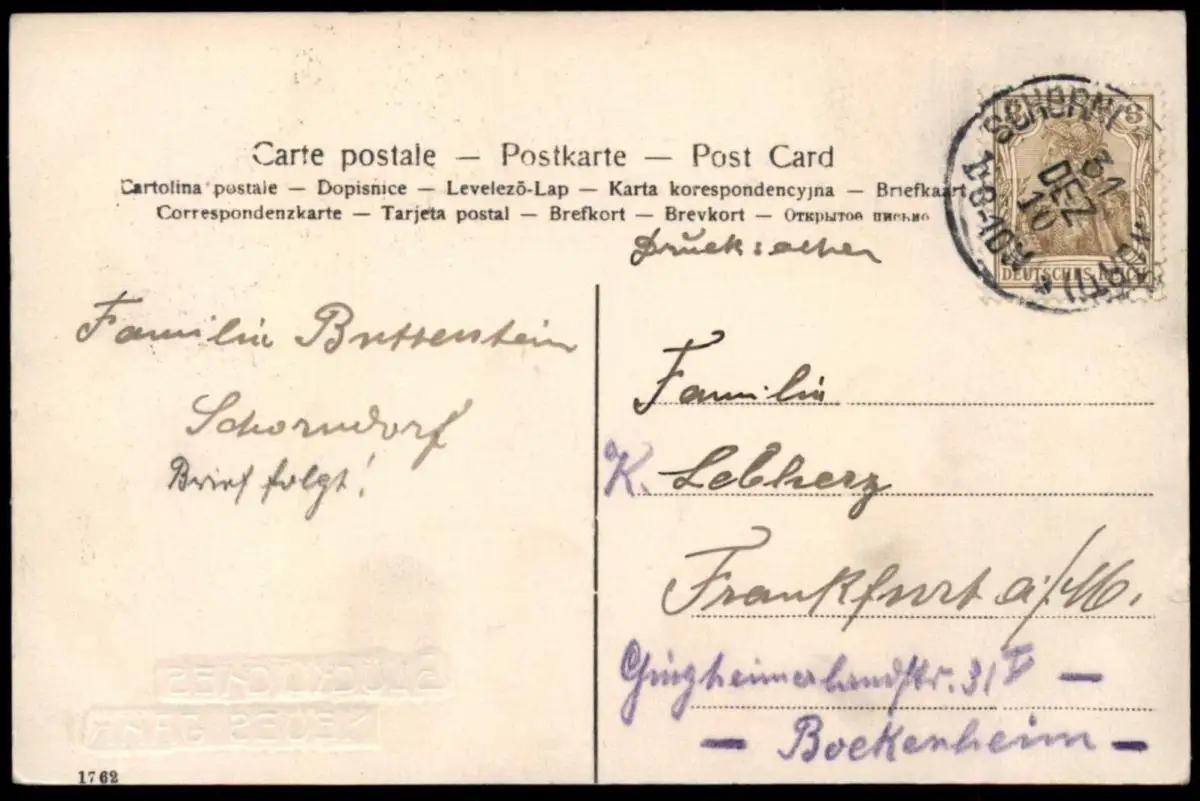 Carte postale — Postkarte — Post Card
Cartolina postale — Dopisnice — Levelezõ-Lap — Karta korespondencyjna — Briefkaart
Correspondenzkarte — Tarjeta postal — Brefkort — Brevkort — Открытое письмо
Drucksachen
3
SCHORN
31
DEZ
10
8-10N
DEUTSCHES REICH
Familie
Schorndorf
Brief folgt!
Familie
K. Lebherz
Frankfurt a/M.
Ginzheimerlandstr. 31 I —
— Bockenheim —
GLÜCKLICHES
NEUES JAHR
1762